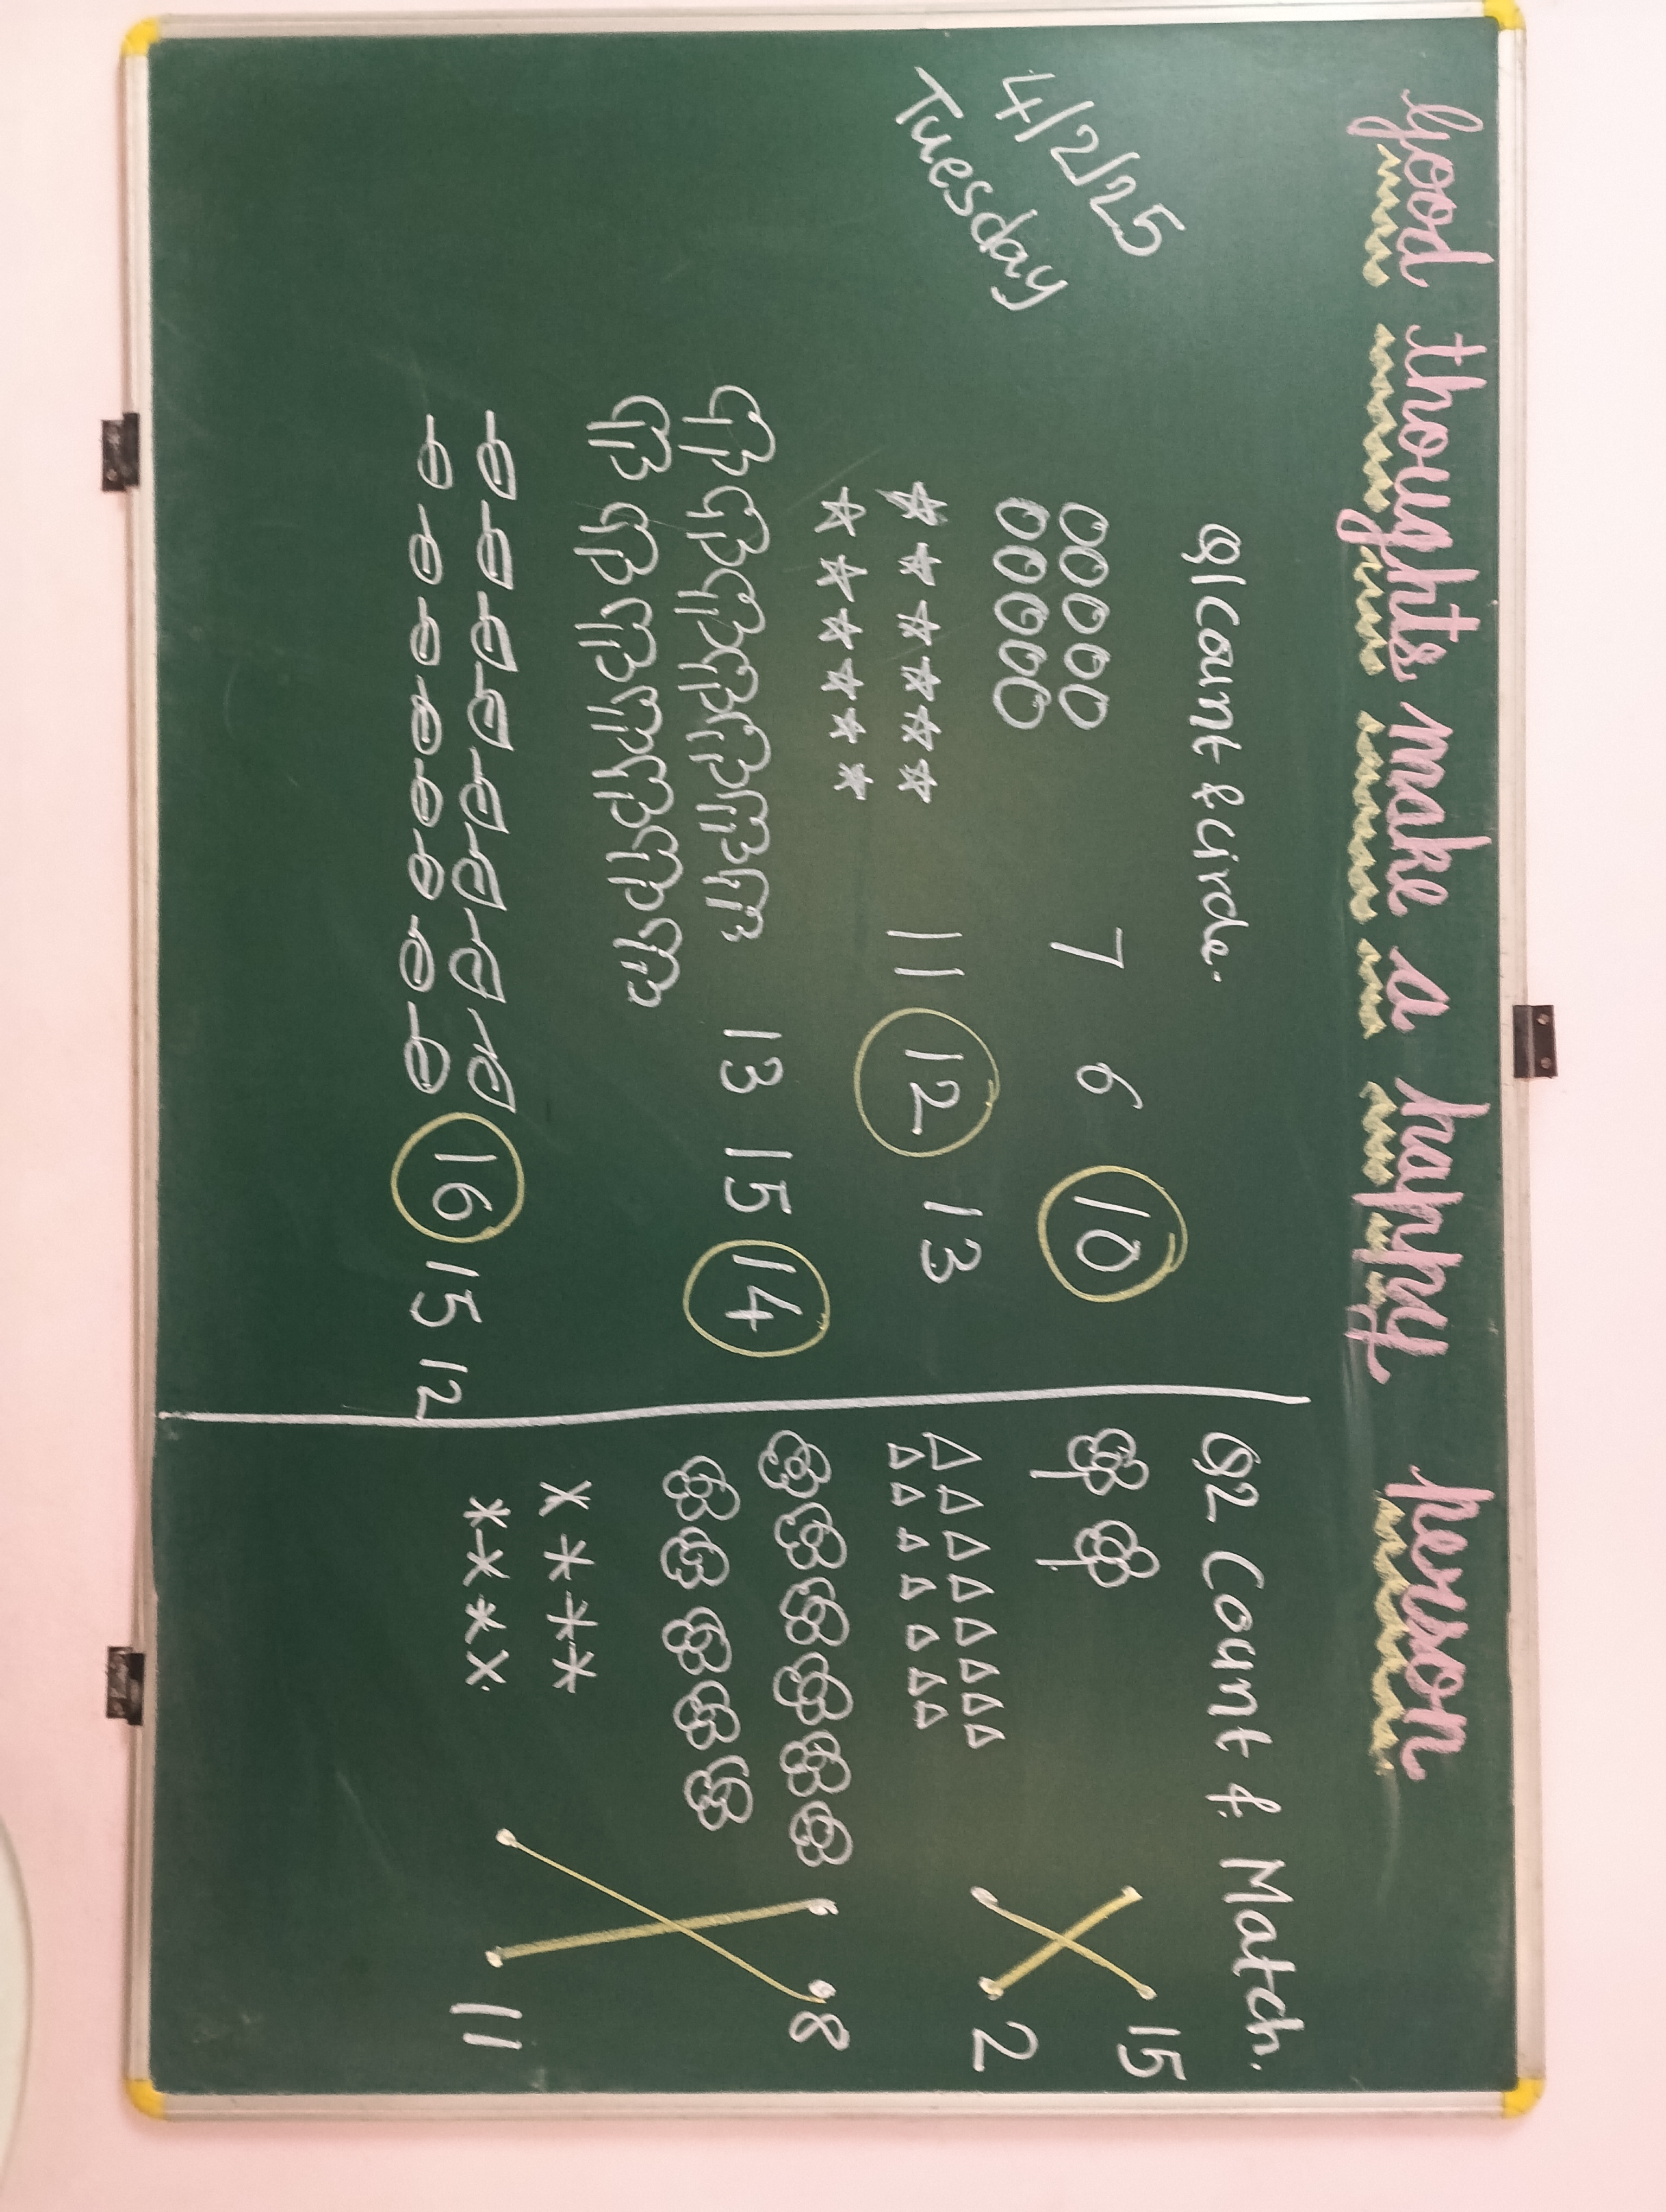 Good thoughts make a happy person
4/2/25
Tuesday
Q1 Count & circle.
7 6 10
11 12 13
13 15 14
16 15 12
Q2 Count & Match.
15
2
8
11